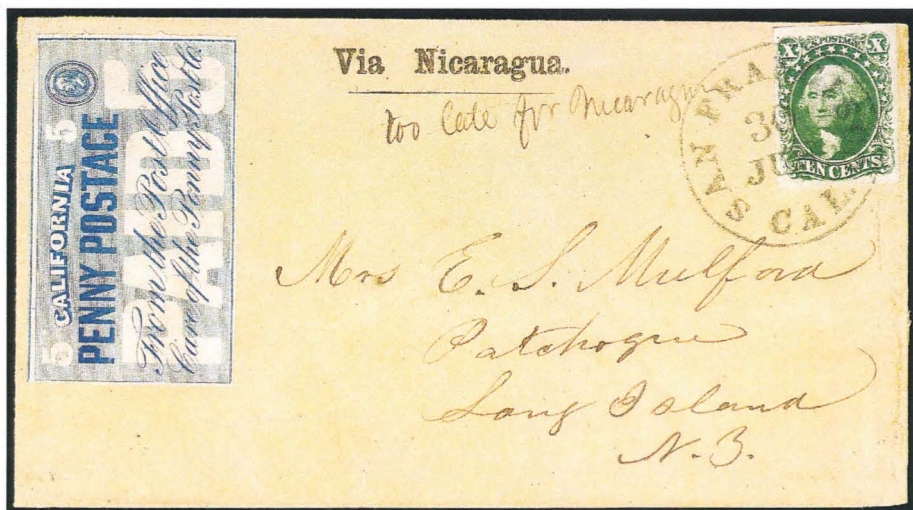 5 CALIFORNIA 5
PENNY POSTAGE
PAID 5
From the Post Office
Care of the Penny Post Co.
Via Nicaragua.
too late for Nicaragua
X U.S. POSTAGE X
TEN CENTS
SAN FRA
30
JU
CAL.
Mrs E. S. Mulford
Patchogue
Long Island
N.Y.